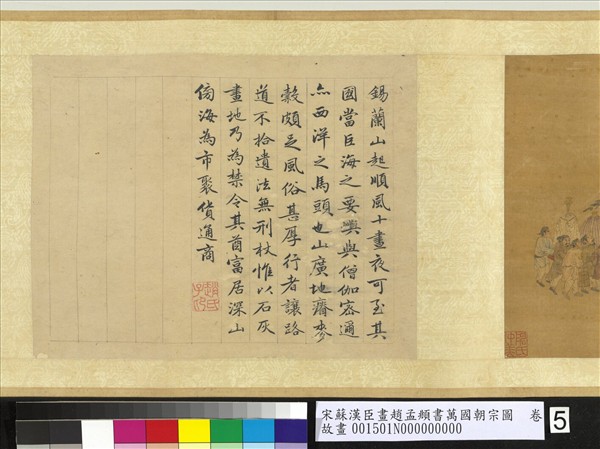 錫蘭山起順風十晝夜可至其
國當巨海之要與與僧伽密邇
亦西洋之馬頭也山廣地瘠麥
穀頗足風俗甚厚行者讓路
道不拾遺法無刑杖惟以石灰
畫地乃為禁令其酋富居深山
傍海為市聚貨通商
趙氏子昂
宋蘇漢臣畫趙孟頫書萬國朝宗圖 卷
故畫 001501N000000000
5